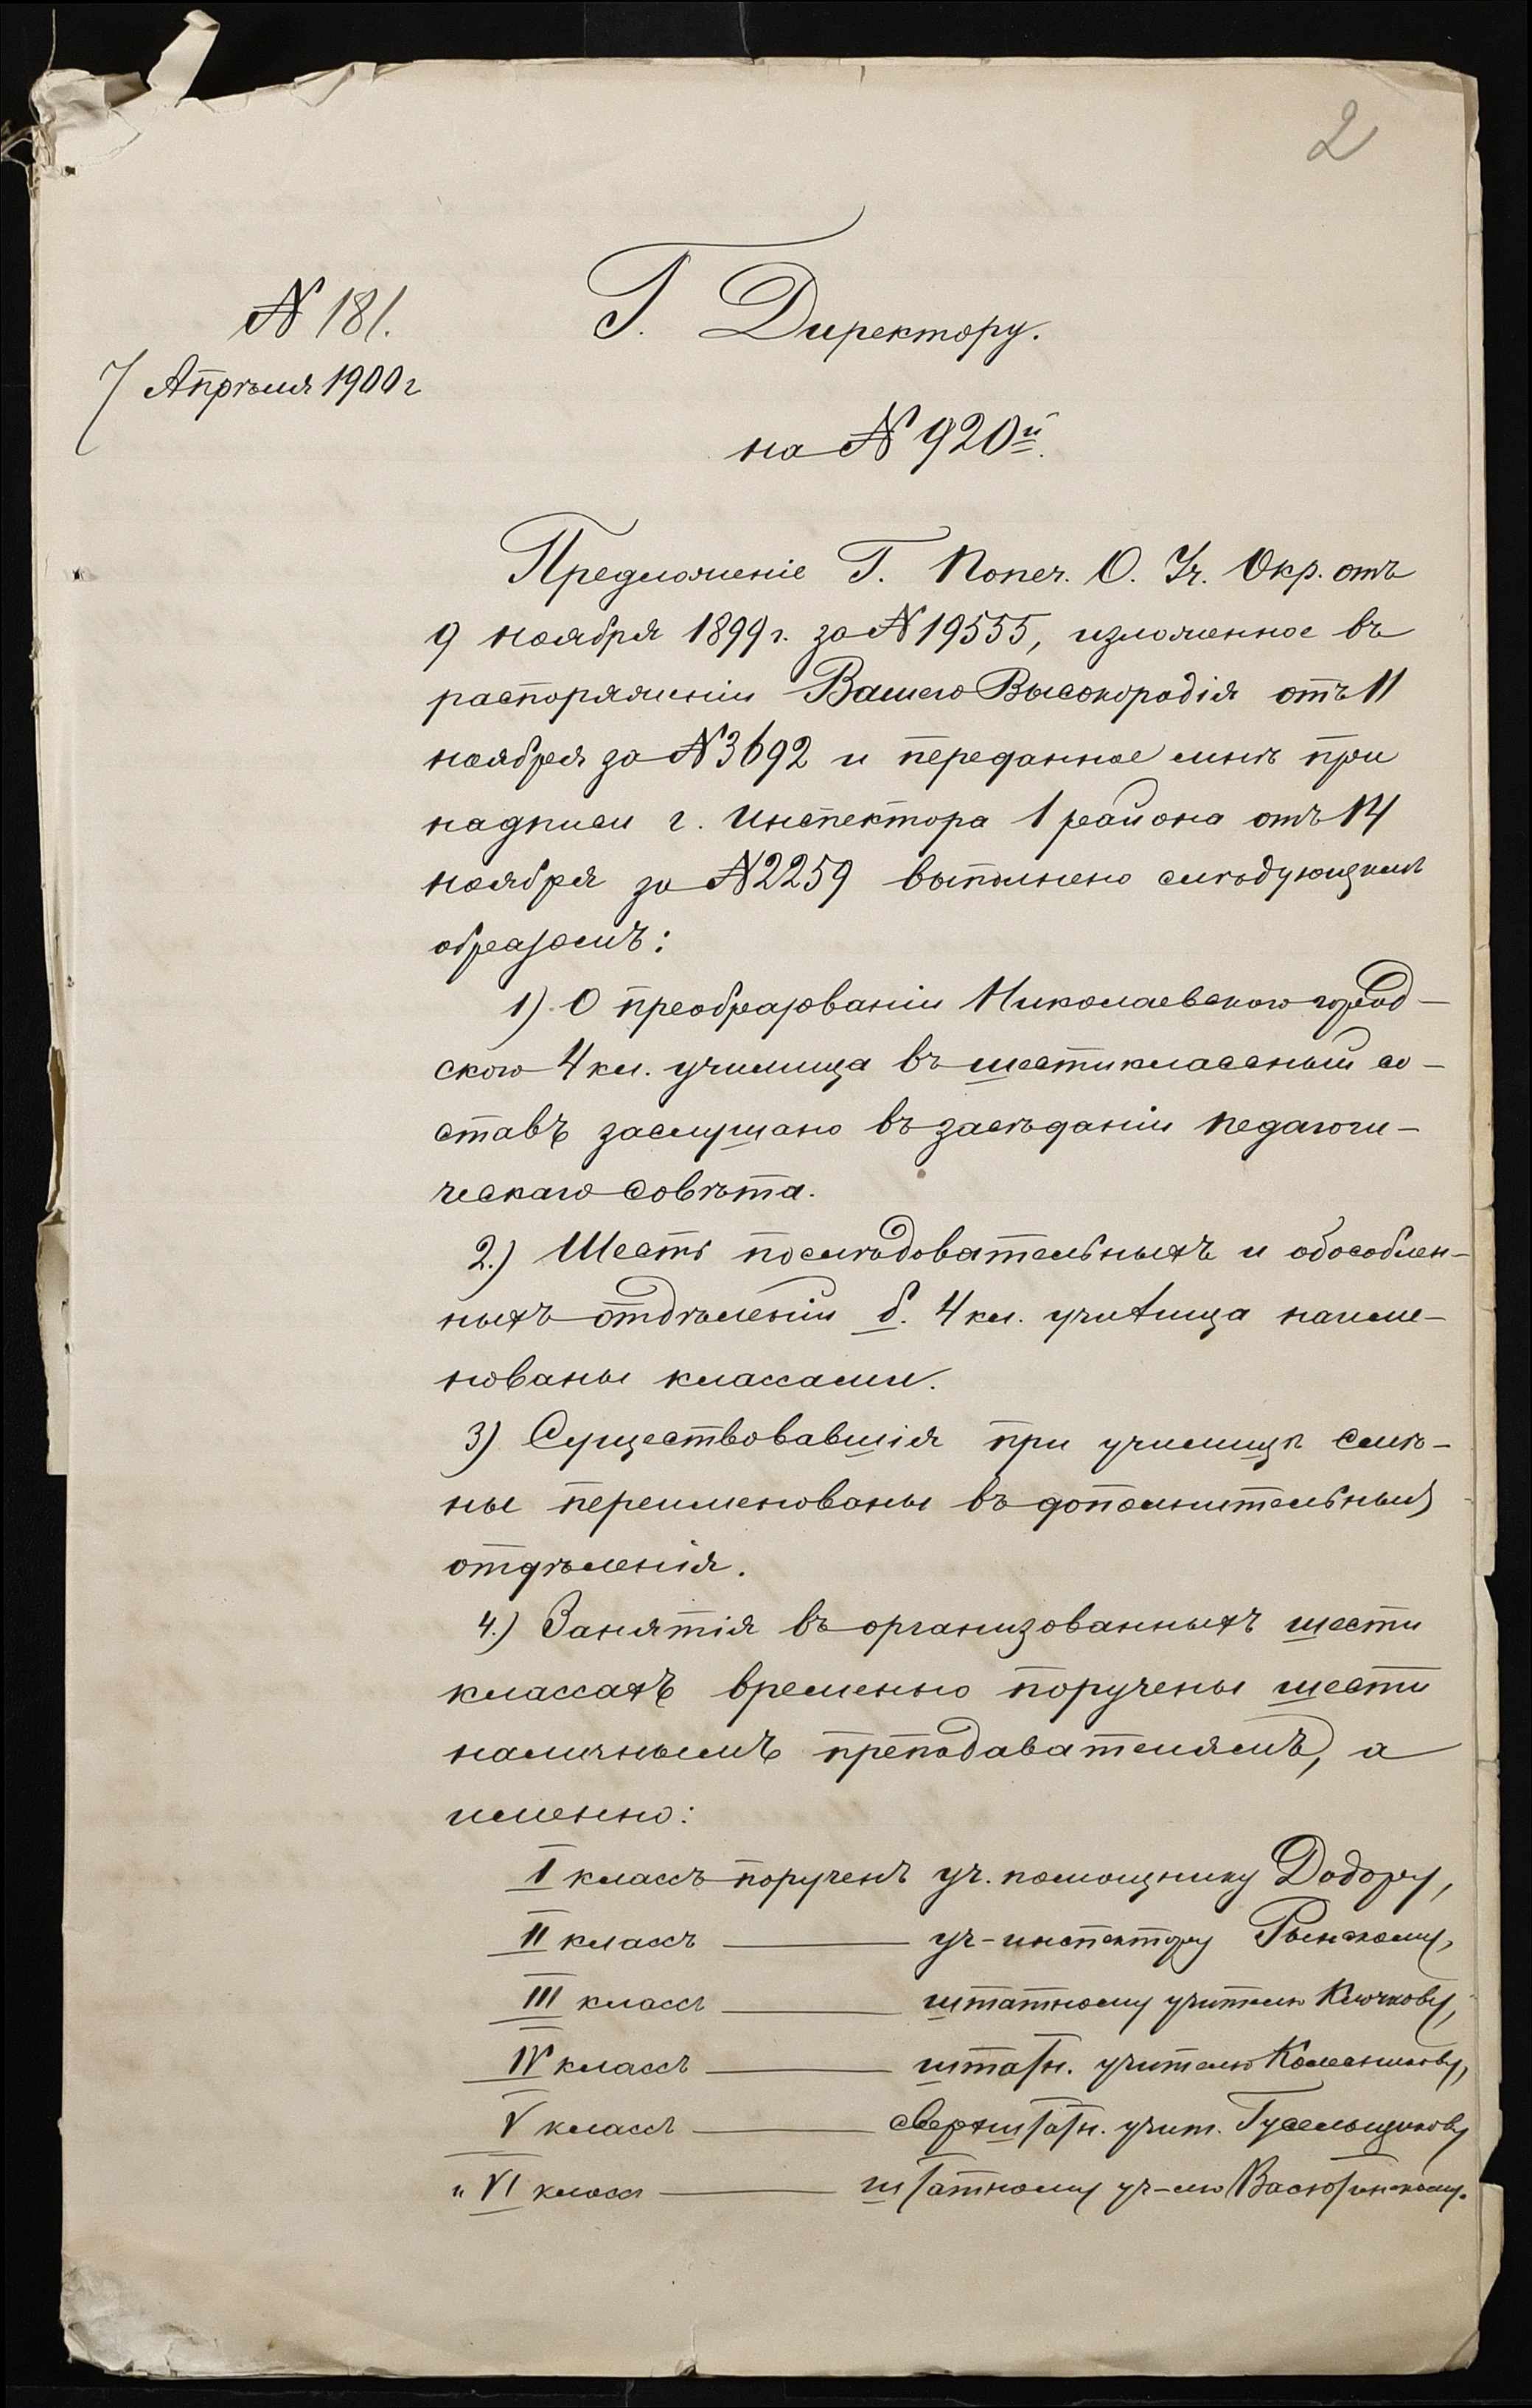 2
№ 181.
7 Апрѣля 1900 г
Г. Директору.
на № 920й.
Предложеніе Г. Попеч. О. Уч. Окр. отъ
9 ноября 1899 г. за № 19555, изложенное въ
распоряженіи Вашего Высокородія отъ 11
ноября за № 3692 и переданное мнѣ при
надписи г. Инспектора 1 района отъ 14
ноября за № 2259 выполнено слѣдующимъ
образомъ:
1) О преобразованіи Николаевскаго город-
ского 4 кл. училища въ шестиклассный со-
ставъ заслушано въ засѣданіи педагоги-
ческаго совѣта.
2.) Шесть послѣдовательныхъ и обособлен-
ныхъ отдѣленій б. 4 кл. училища наиме-
нованы классами.
3) Существовавшія при училищѣ смѣ-
ны переименованы въ дополнительныя
отдѣленія.
4.) Занятія въ организованныхъ шести
классахъ временно поручены шести
наличнымъ преподавателямъ, а
именно:
I классъ порученъ уч. помощнику Додору,
II классъ ——— уч-инспектору Рынскому,
III классъ ——— штатному учителю Клочкову,
IV классъ ——— штатн. учителю
V классъ ——— сверхштатн. учит. Гусельщикову
и VI классъ ——— штатному уч-лю Васютинскому.